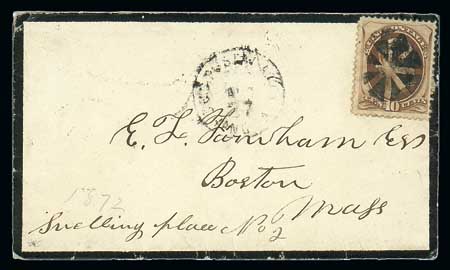 10
E. F. Farnham Esq
Boston
Mass
1872
Snelling place No 2